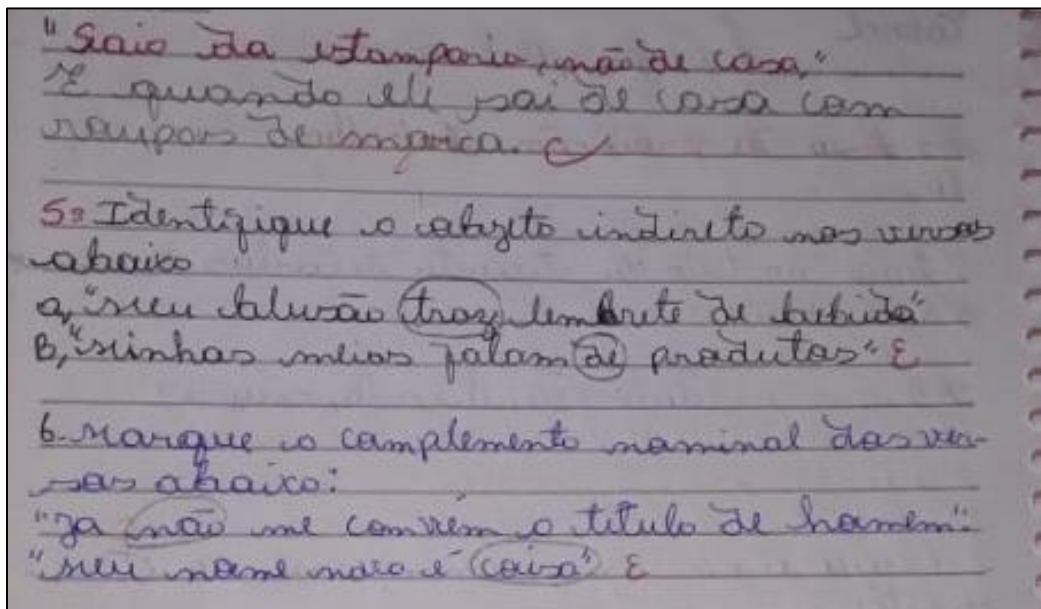 "Saio da estamparia, não de casa,"
É quando ele sai de casa com
roupas de marca. C
5ª Identifique o objeto indireto nos versos
abaixo
a, "meu blusão traz lembrete de bebida"
B, "minhas meias falam de produtos" E
6. Marque o complemento nominal dos ver-
sos abaixo:
"Ja não me convém o título de homem".
"meu nome novo é coisa" E